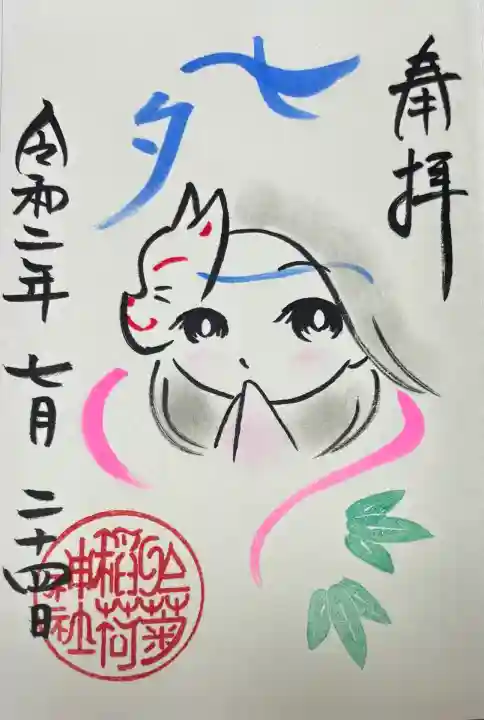 奉拝
七夕
令和二年 七月 二十四日
稲荷
神社